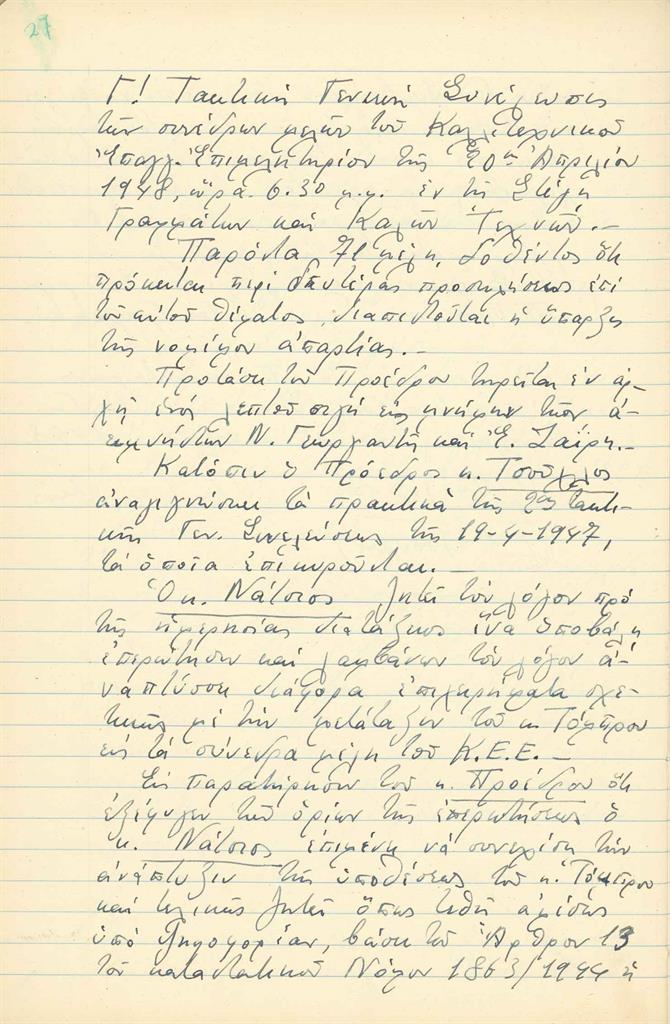 27
Γ! Τακτική Γενική Συνέλευσις
τῶν συνέδρων μελῶν τοῦ Καλλιτεχνικοῦ
Ἐπαγγ. Ἐπιμελητηρίου τῆς 20ης Ἀπριλίου
1948, ὥρα 6.30 μ.μ. ἐν τῇ Στέγῃ
Γραμμάτων καί Καλῶν Τεχνῶν.-
Παρόντα 71 μέλη, δοθέντος ὅτι
πρόκειται περί δευτέρας προσκλήσεως ἐπί
τοῦ αὐτοῦ θέματος, διαπιστοῦται ἡ ὕπαρξις
τῆς νομίμου ἀπαρτίας.-
Προτάσει τοῦ Προέδρου τηρεῖται ἐν ἀρ-
χῇ ἑνός λεπτοῦ σιγή εἰς μνήμην τῶν ἀ-
ειμνήστων Ν. Γεωργαντῆ καί Ἐ. Ζαΐρη.-
Κατόπιν ὁ Πρόεδρος κ. Τσοῦχλος
ἀναγιγνώσκει τά πρακτικά τῆς 2ας τακτι-
κῆς Γεν. Συνελεύσεως τῆς 19-4-1947,
τά ὁποῖα ἐπικυροῦνται.-
Ὁ κ. Νάτσιος ζητεῖ τόν λόγον πρό
τῆς ἡμερησίας διατάξεως ἵνα ὑποβάλῃ
ἐπερώτησιν καί λαμβάνων τόν λόγον ἀ-
ναπτύσσει διάφορα ἐπιχειρήματα σχε-
τικῶς μέ τήν μετάταξιν τοῦ κ. Τόμπρου
εἰς τά σύνεδρα μέλη τοῦ Κ.Ε.Ε.-
Εἰς παρατήρησιν τοῦ κ. Προέδρου ὅτι
ἐξέφυγεν τῶν ὁρίων τῆς ἐπερωτήσεως ὁ
κ. Νάτσιος ἐπιμένει νά συνεχίσῃ τήν
ἀνάπτυξιν τῆς ὑποθέσεως τοῦ κ. Τόμπρου
καί τελικῶς ζητεῖ ὅπως τεθῇ ἀμέσως
ὑπό ψηφοφορίαν, βάσει τοῦ Ἄρθρου 13
τοῦ καταστατικοῦ Νόμου 1863/1944 ἡ